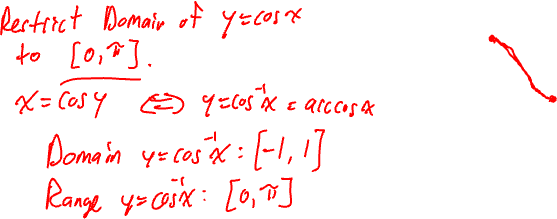 Restrict Domain of y=cosx
to [0,π].
x=cosy ⇔ y=cos⁻¹x=arccosx
Domain y=cos⁻¹x: [-1,1]
Range y=cos⁻¹x: [0,π]